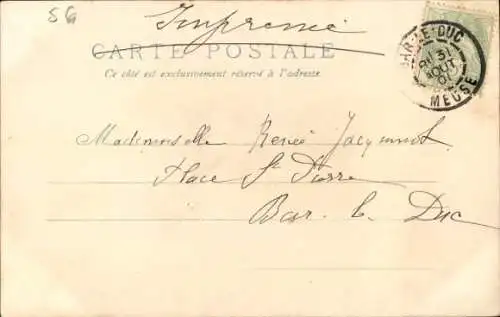 56
Imprimé
CARTE POSTALE
Ce côté est exclusivement réservé à l'adresse
BAR-LE-DUC
31
AOUT
MEUSE
Mademoiselle Renée Jacquinot
Place St Pierre
Bar le Duc